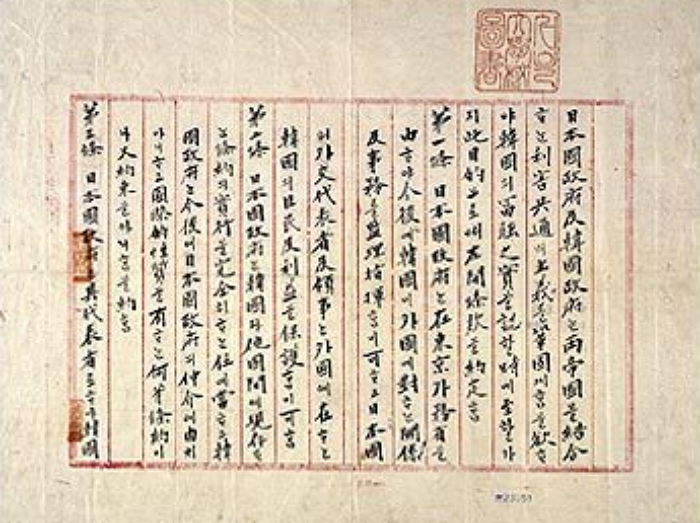 日本國政府及韓國政府는兩帝國을結合
하는利害共通의主義를鞏固케함을欲하
야韓國의富強之實을認할時에至할까
지此目的으로써左開條款을約定함
第一條 日本國政府는在東京外務省을
由하야今後에韓國이外國에對하는關係
及事務를監理指揮함이可하고日本國
의外交代表者及領事는外國에在하는
韓國의臣民及利益을保護함이可함
第二條 日本國政府는韓國과他國間에現存한
는條約의實行을完全히하는任에當하고韓
國政府는今後에日本國政府의仲介에由치
아니하고國際的性質을有하는何等條約이
나又約束을아니함을約함
第三條 日本國政府는其代表者로하야韓國